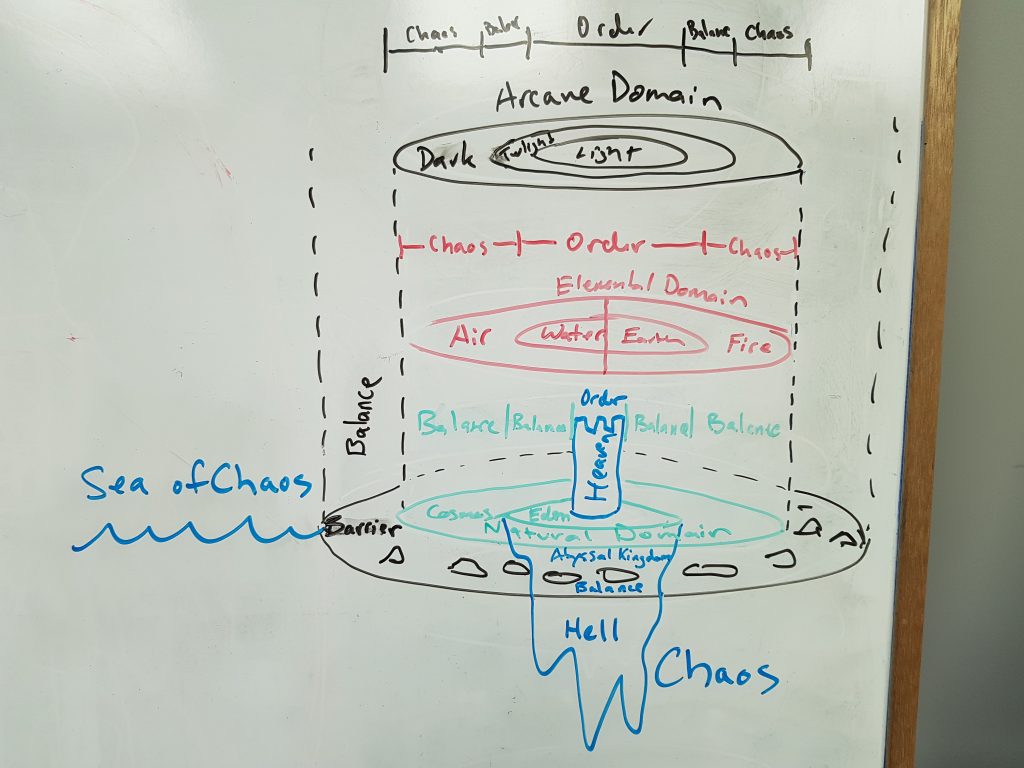 Chaos Order Balance Chaos
Arcane Domain
Dark Twilight Light
Chaos Order Chaos
Elemental Domain
Air Water Earth Fire
Order
Balance Balance Balance Balance
Balance
Heaven
Sea of Chaos
Cosmos Eden
Barrier
Natural Domain
Abyssal Kingdom
Balance
Hell
Chaos